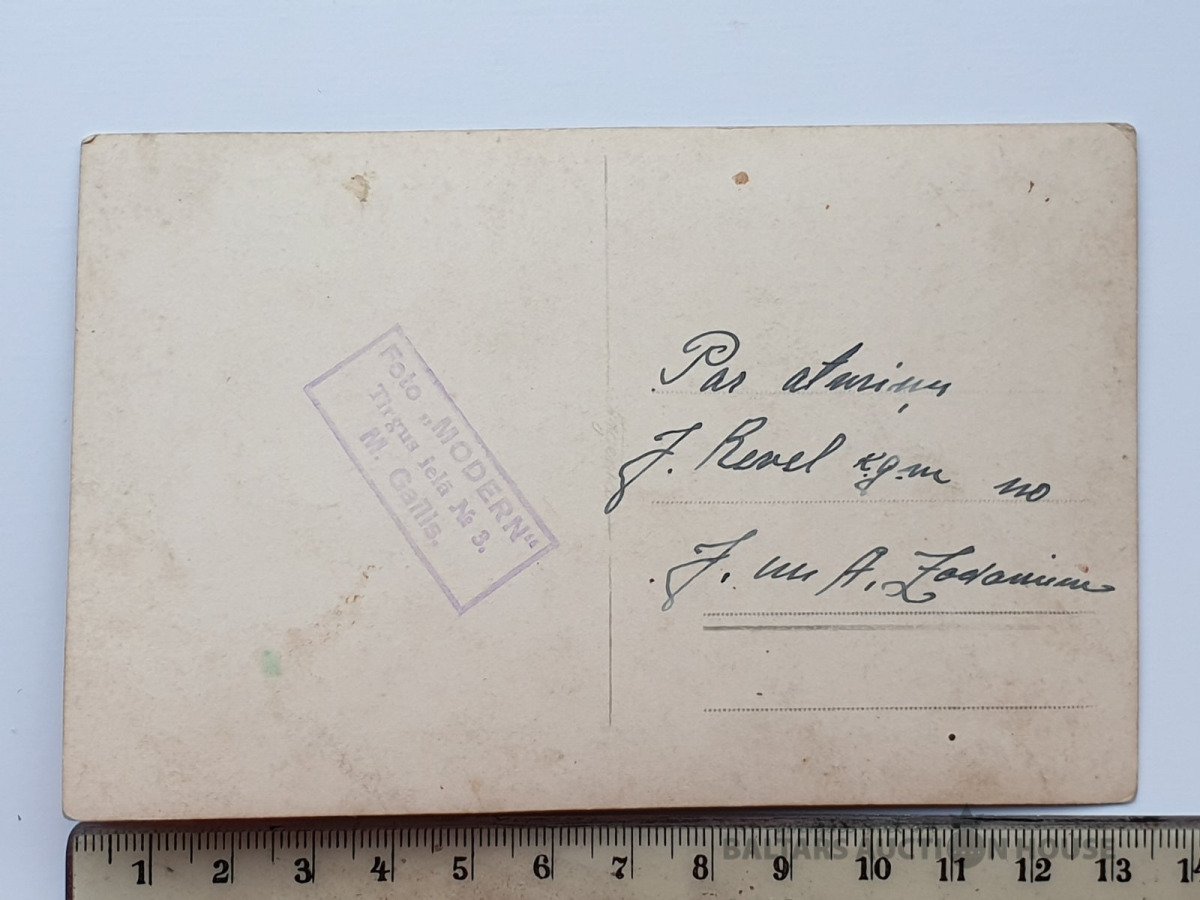 Foto „MODERN“
Tirgus ielā № 3.
M. Gailis.
Par atmiņu
J. Revel kgm no
J. un A.
1 2 3 4 5 6 7 8 9 10 11 12 13 14
BALTARS AUCTION HOUSE